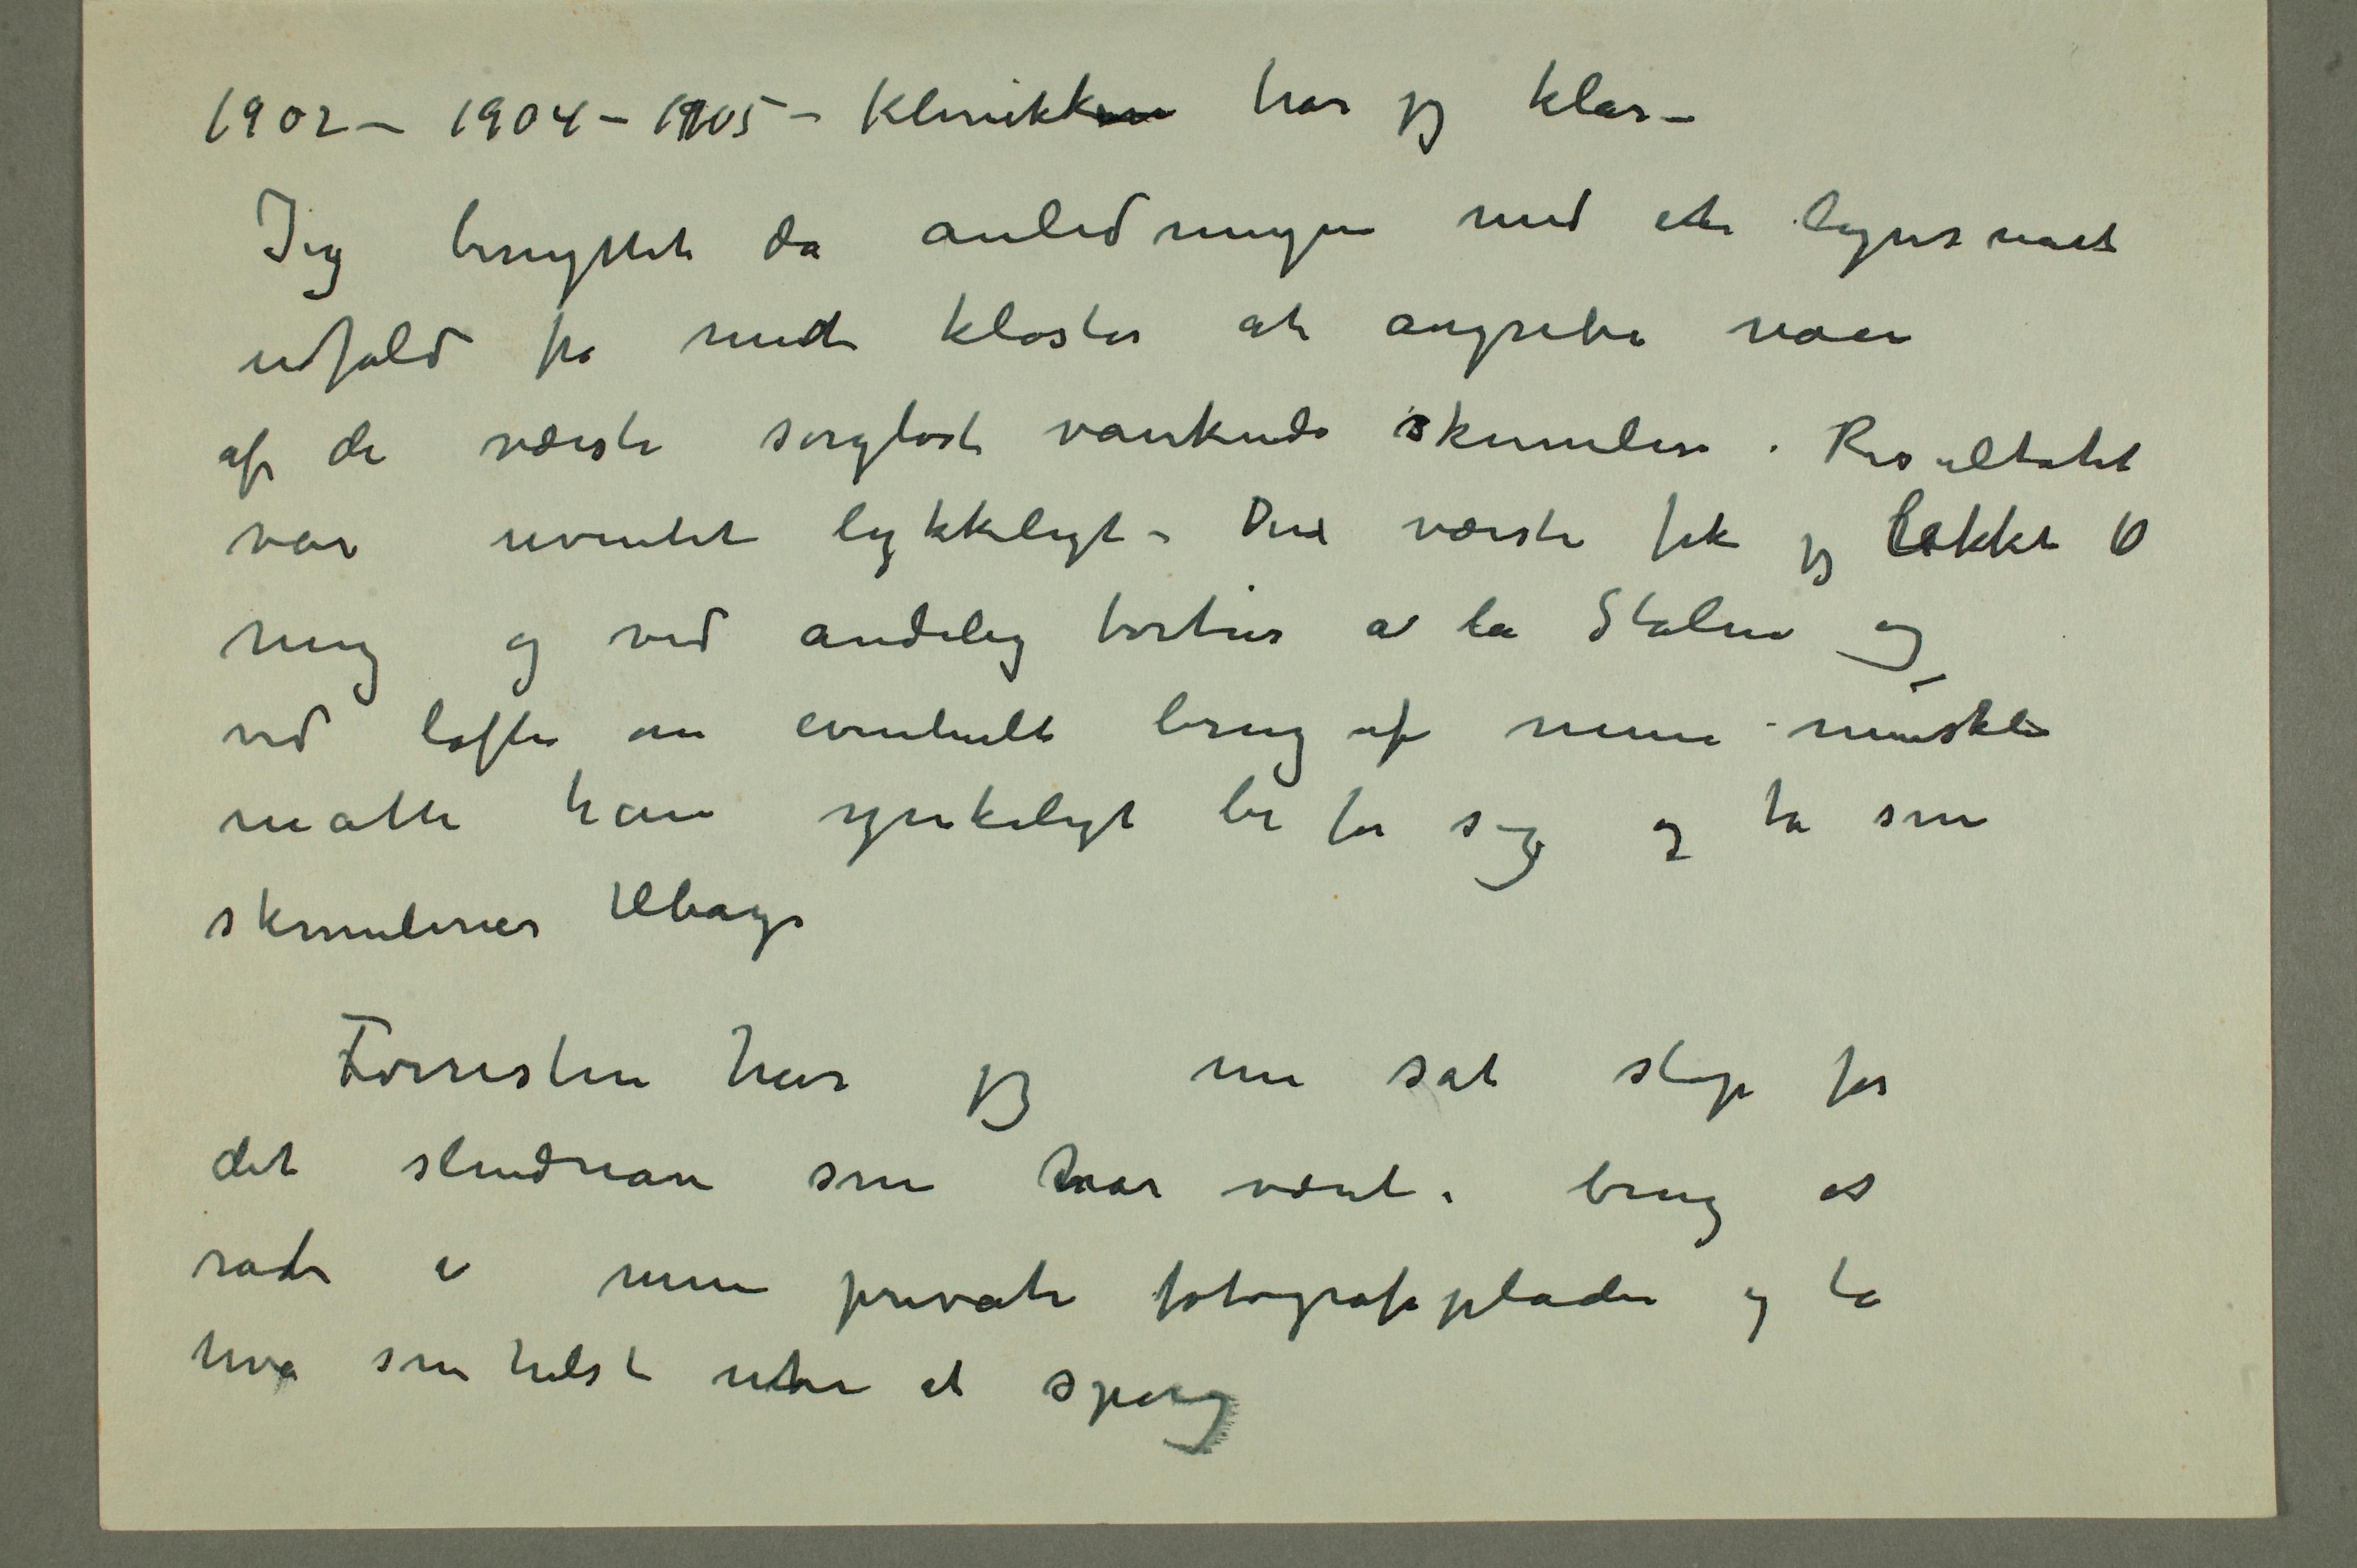 1902 – 1904 – 1905 – Klinikken har jeg klar –
Jeg benyttet da anledningen med et lynsnart
udfald fra mit kloster at angribe noen
af de værste sorgløst vankende skumlere. Resultatet
var uventet lykkeligt – Den værste fik jeg lokket til
mig og ved åndelig tortur a la Stalin og
ved løfte om eventuelt brug af mine muskler
måtte han ynkeligt be for sig og ta sine
skumlerier tilbage
Forresten har jeg nu sat stop for
det slendrian som har været i brug at
rode i mine private fotografiplader og ta
hva somhelst uten at spørge